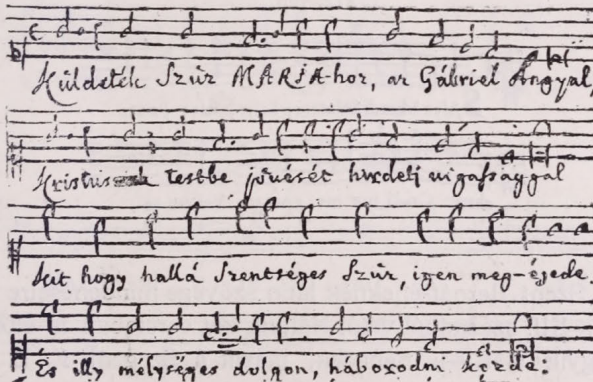 Küldeték Szűz MARIA-hoz, az Gábriel Angyal,
Kristus testbe jövését hirdetj vigassággal
kit hogy hallá Szentséges Szűz, igen meg-éjede.
És illy mélységes dolgon, háborodni kezde: